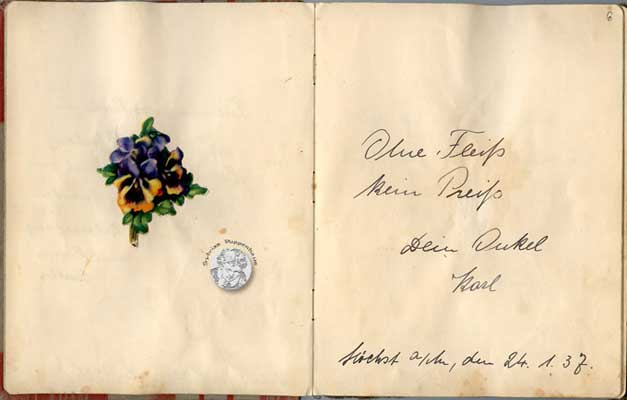 Sabrias Puppenheim
6
Ohne Fleiß
kein Preiß
Dein Onkel
Karl
Höchst a/M., den 24. 1. 37.